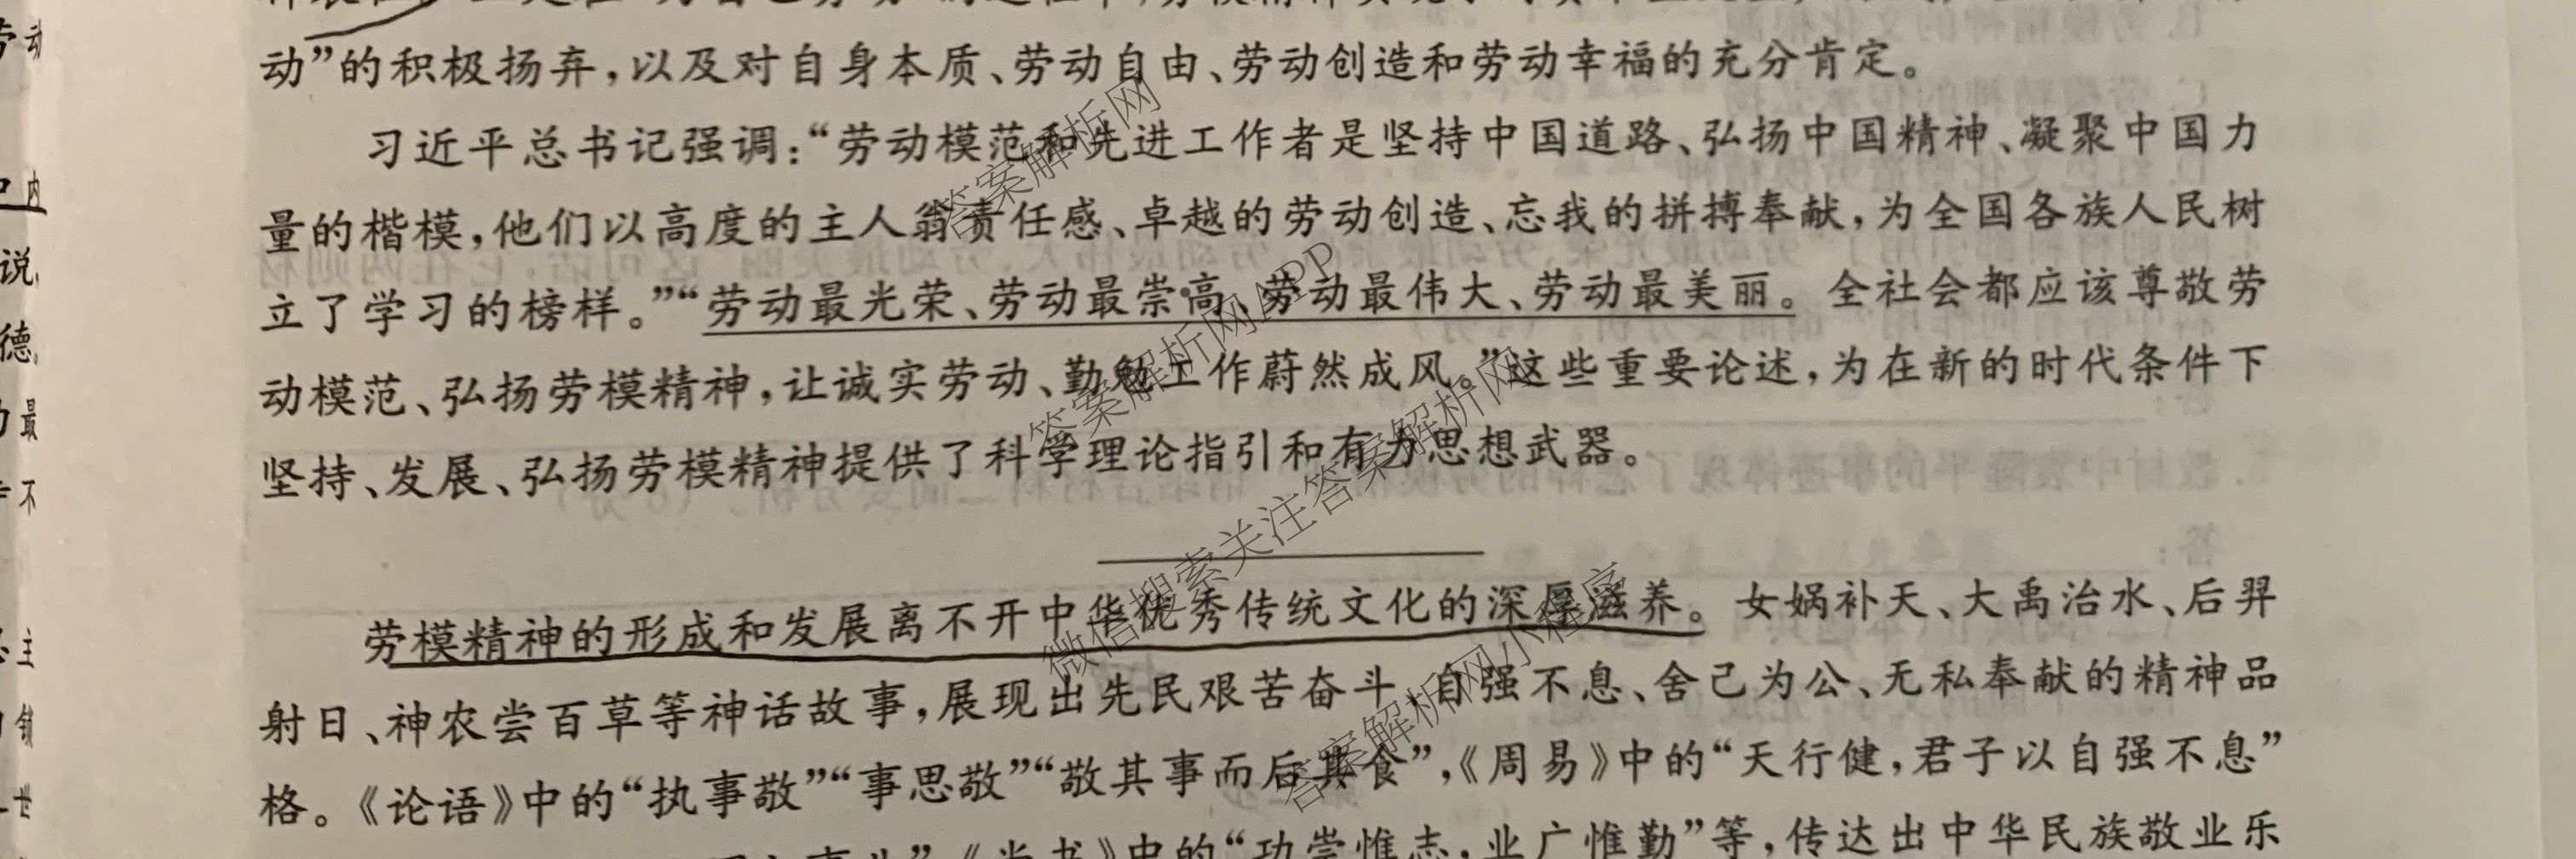 动”的积极扬弃，以及对自身本质、劳动自由、劳动创造和劳动幸福的充分肯定。
习近平总书记强调：“劳动模范和先进工作者是坚持中国道路、弘扬中国精神、凝聚中国力
量的楷模，他们以高度的主人翁责任感、卓越的劳动创造、忘我的拼搏奉献，为全国各族人民树
立了学习的榜样。”“劳动最光荣、劳动最崇高、劳动最伟大、劳动最美丽。全社会都应该尊敬劳
动模范、弘扬劳模精神，让诚实劳动、勤勉工作蔚然成风。”这些重要论述，为在新的时代条件下
坚持、发展、弘扬劳模精神提供了科学理论指引和有力思想武器。
劳模精神的形成和发展离不开中华优秀传统文化的深厚滋养。女娲补天、大禹治水、后羿
射日、神农尝百草等神话故事，展现出先民艰苦奋斗、自强不息、舍己为公、无私奉献的精神品
格。《论语》中的“执事敬”“事思敬”“敬其事而后其食”，《周易》中的“天行健，君子以自强不息”
中的“功崇惟志，业广惟勤”等，传达出中华民族敬业乐
答案解析网
答案解析网APP
微信搜索关注答案解析网
答案解析网小程序